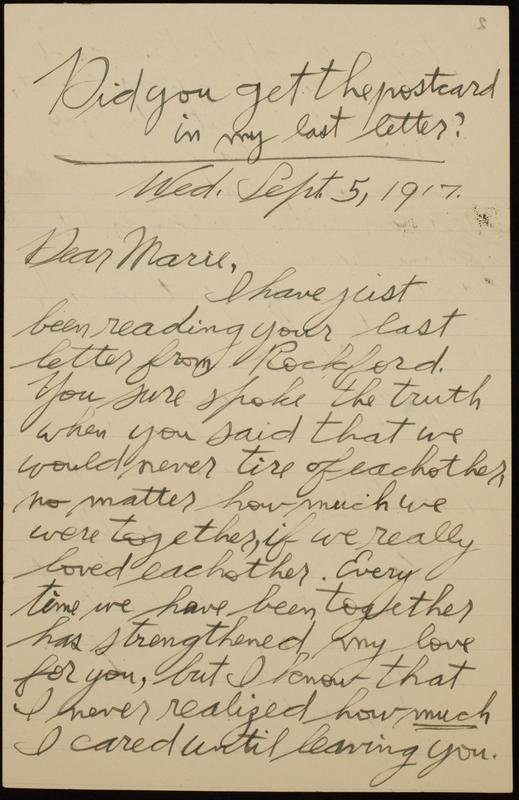 2
Did you get the postcard
in my last letter?
Wed. Sept. 5, 1917.
Dear Marie,
I have just
been reading your last
letter from Rockford.
You sure spoke the truth
when you said that we
would never tire of eachother,
no matter how much we
were together, if we really
loved eachother. Every
time we have been together
has strengthened my love
for you, but I know that
I never realized how much
I cared until leaving you.